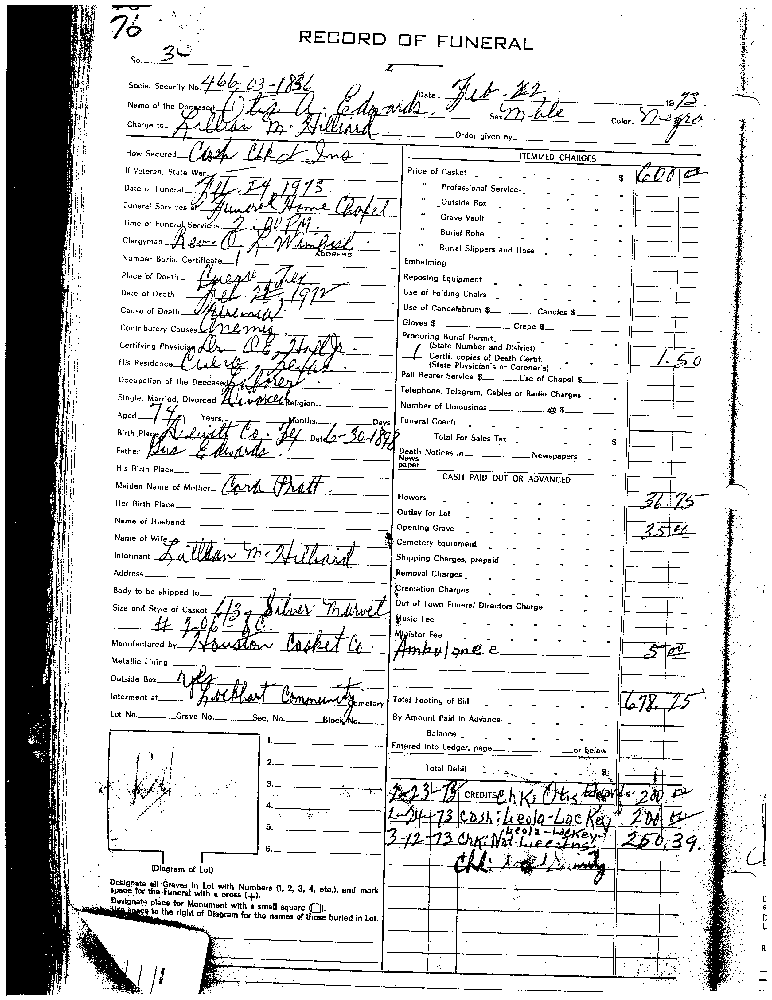 76
RECORD OF FUNERAL
No. 36
Social Security No. 466-03-1836 Date Feb. 22 1973
Name of the Deceased Otis A. Edwards. Sex Male Color Negro
Charge to Lillian M. Hilliard Order given by
How Secured Cash Chk & Ins
If Veteran, State War
Date of Funeral Feb. 24 1973
Funeral Services at Funeral Home Chapel
Time of Funeral Service 2:00 P.M.
Clergyman Rev. O. L. Wimbish
ADDRESS
Number Burial Certificate 1
Place of Death Cuero Tex
Date of Death Feb 22 1972
Cause of Death
Contributory Causes Anemia
Certifying Physician Dr. O.E. Hall Jr.
His Residence Cuero, Texas
Occupation of the Deceased Laborer
Single, Married, Divorced Divorced Religion
Aged 74 Years Months Days
Birth Place Dewitt Co. Tex Date 6-30-1898
Father Gus Edwards
His Birth Place
Maiden Name of Mother Cora Pratt
Her Birth Place
Name of Husband
Name of Wife
Informant Lillian M. Hilliard
Address
Body to be shipped to
Size and Style of Casket 6/3 Silver Marvel
# 206
Manufactured by Houston Casket Co
Metallic Lining
Outside Box yes
Interment at Lockhart Community Cemetery
Lot No. Grave No. Sec. No. Block No.
1.
2.
3.
4.
5.
6.
(Diagram of Lot)
Designate all Graves in Lot with Numbers (1, 2, 3, 4, etc.), and mark
space for the Funeral with a cross (+).
Designate place for Monument with a small square (☐).
Use space to the right of Diagram for the names of those buried in Lot.
ITEMIZED CHARGES
Price of Casket $ 600 00
" Professional Service
" Outside Box
" Grave Vault
" Burial Robe
" Burial Slippers and Hose
Embalming
Reposing Equipment
Use of Folding Chairs
Use of Candelabrum $ Candles $
Gloves $ Crepe $
Procuring Burial Permit
(State Number and District)
1 Certif. copies of Death Certif. 1.50
(State Physician's or Coroner's)
Pall Bearer Service $ Use of Chapel $
Telephone, Telegram, Cables or Radio Charges
Number of Limousines @ $
Funeral Coach
Total For Sales Tax $
Death Notices in Newspapers
News
paper
CASH PAID OUT OR ADVANCED
Flowers 36 75
Outlay for Lot
Opening Grave 35 00
Cemetery Equipment
Shipping Charges, prepaid
Removal Charges
Cremation Charges
Out of Town Funeral Directors Charge
Music Fee
Minister Fee
Ambulance 5 00
Total Footing of Bill 678 25
By Amount Paid in Advance
Balance
Entered into Ledger, page or below
Total Debit $
2-23-73 CREDITS Chk: Otis Edwards 200 00
2-24-73 Cash: Leola-Lockey 200 00
Leola-Lockey
3-12-73 Chk: Nat Life Ins 250.39
Chk: